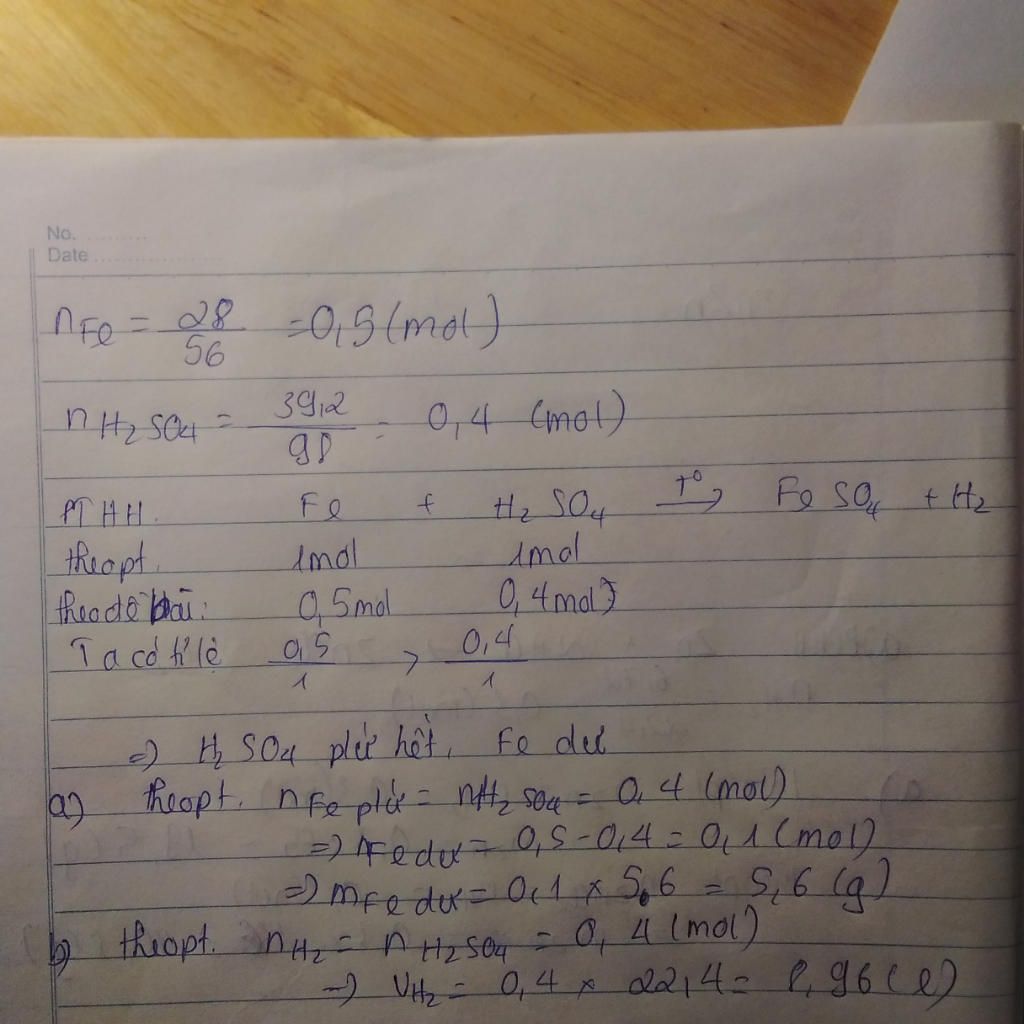 No. ..........
Date ....................
nFe = 28/56 = 0,5 (mol)
nH2SO4 = 39,2/98 = 0,4 (mol)
PTHH. Fe + H2SO4 —t°→ FeSO4 + H2
theo pt. 1mol 1mol
theo đề bài: 0,5mol 0,4mol
Ta có tỉ lệ 0,5/1 > 0,4/1
=) H2SO4 pứ hết, Fe dư
a) theo pt. nFe pứ = nH2SO4 = 0,4 (mol)
=) nFe dư = 0,5 - 0,4 = 0,1 (mol)
=) mFe dư = 0,1 × 5,6 = 5,6 (g)
b) theo pt. nH2 = nH2SO4 = 0,4 (mol)
→ VH2 = 0,4 × 22,4 = 8,96 (l)